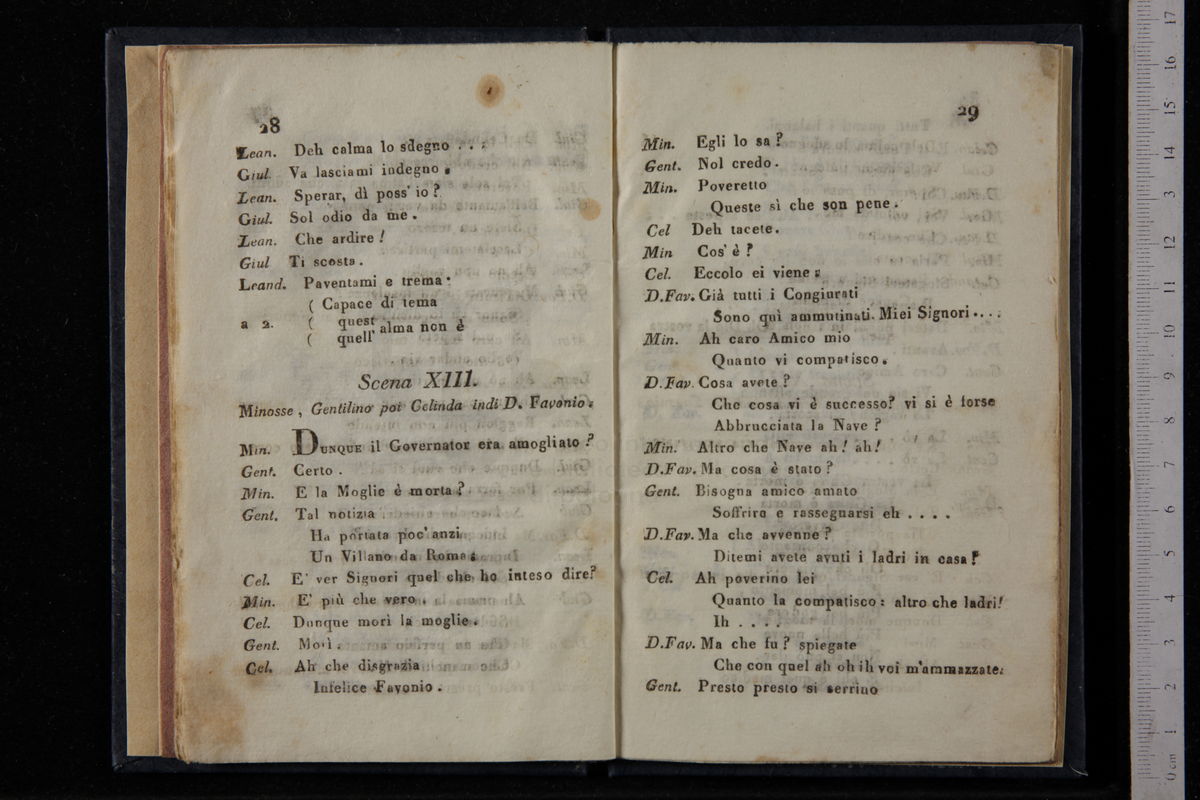 28
Lean. Deh calma lo sdegno . . .
Giul Va lasciami indegno.
Lean. Sperar, dì poss' io?
Giul. Sol odio da me.
Lean. Che ardire!
Giul Ti scosta.
Leand. Paventami e trema:
( Capace di tema
a 2. ( quest alma non è
( quell'
Scena XIII.
Minosse, Gentilino poi Celinda indi D. Favonio.
Min. DUNQUE il Governator era amogliato?
Gent. Certo.
Min. E la Moglie è morta?
Gent. Tal notizia
Ha portata poc' anzi
Un Villano da Roma.
Cel. E' ver Signori quel che ho inteso dire?
Min. E' più che vero.
Cel. Dunque morì la moglie.
Gent. Morì.
Cel. Ah che disgrazia
Infelice Favonio.
29
Min. Egli lo sa?
Gent. Nol credo.
Min. Poveretto
Queste sì che son pene.
Cel Deh tacete.
Min Cos' è?
Cel. Eccolo ei viene.
D.Fav. Già tutti i Congiurati
Sono quì ammutinati. Miei Signori....
Min. Ah caro Amico mio
Quanto vi compatisco.
D.Fav. Cosa avete?
Che cosa vi è successo? vi si è forse
Abbrucciata la Nave?
Min. Altro che Nave ah! ah!
D.Fav. Ma cosa è stato?
Gent. Bisogna amico amato
Soffrire e rassegnarsi eh . . . .
D.Fav. Ma che avvenne?
Ditemi avete avuti i ladri in casa?
Cel. Ah poverino lei
Quanto la compatisco: altro che ladri!
Ih . . . .
D.Fav. Ma che fu? spiegate
Che con quel ah oh ih voi m'ammazzate.
Gent. Presto presto si serrino
17
16
15
14
13
12
11
10
9
8
7
6
5
4
3
2
1
0 cm